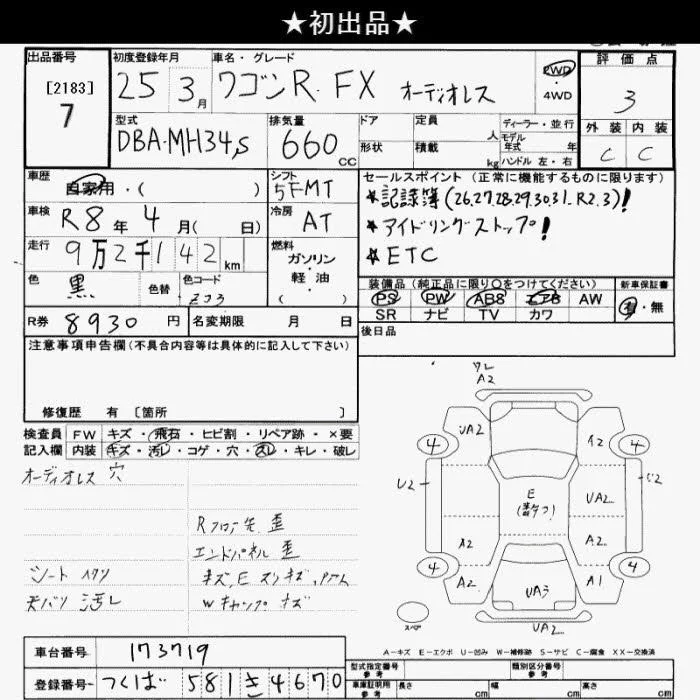 ★初出品★
出品番号
[2183]
7
初度登録年月
25 3月
車名・グレード
ワゴンR FX オーディオレス
2WD
4WD
評価点
3
外装 内装
C C
型式
DBA-MH34S
排気量
660 CC
ドア
形状
定員 人
積載 kg
ディーラー・並行
モデル
年式 年
ハンドル 左・右
車歴
自家用・( )
シフト
5FMT
車検
R8年 4月( 日)
冷房
AT
走行
9万2千142km
燃料
ガソリン
軽・油
( )
色
黒
色替
色コード
ZJ3
R券 8930円
名変期限 月 日
セールスポイント (正常に機能するものに限ります)
★記録簿(26.27.28.29.30.31.R2.3)!
★アイドリングストップ!
★ETC
装備品(純正品に限り○をつけてください)
PS PW ABS エアB AW
SR ナビ TV カワ
新車保証書
有・無
後日品
注意事項申告欄(不具合内容等は具体的に記入して下さい)
修復歴 有 [箇所 ]
検査員 FW キズ・飛石・ヒビ割・リペア跡・×要
記入欄 内装 キズ・汚レ・コゲ・穴・スレ・キレ・破レ
オーディオレス 穴
Rフロア先 歪
エンドパネル 歪
シート
天バリ 汚レ
ワレ
A2
UA2
A2
4
4
U2
E
UA2
A2
A2
4
4
A2
UA3
A1
UA2
スペア
A-キズ E-エクボ U-凹み W-補修跡 S-サビ C-腐食 XX-交換済
車台番号 173719
登録番号 つくば 581 き 4670
型式指定番号
参考
類別区分番号
参考
車庫証明用
参考
長さ cm 幅 cm 高さ cm